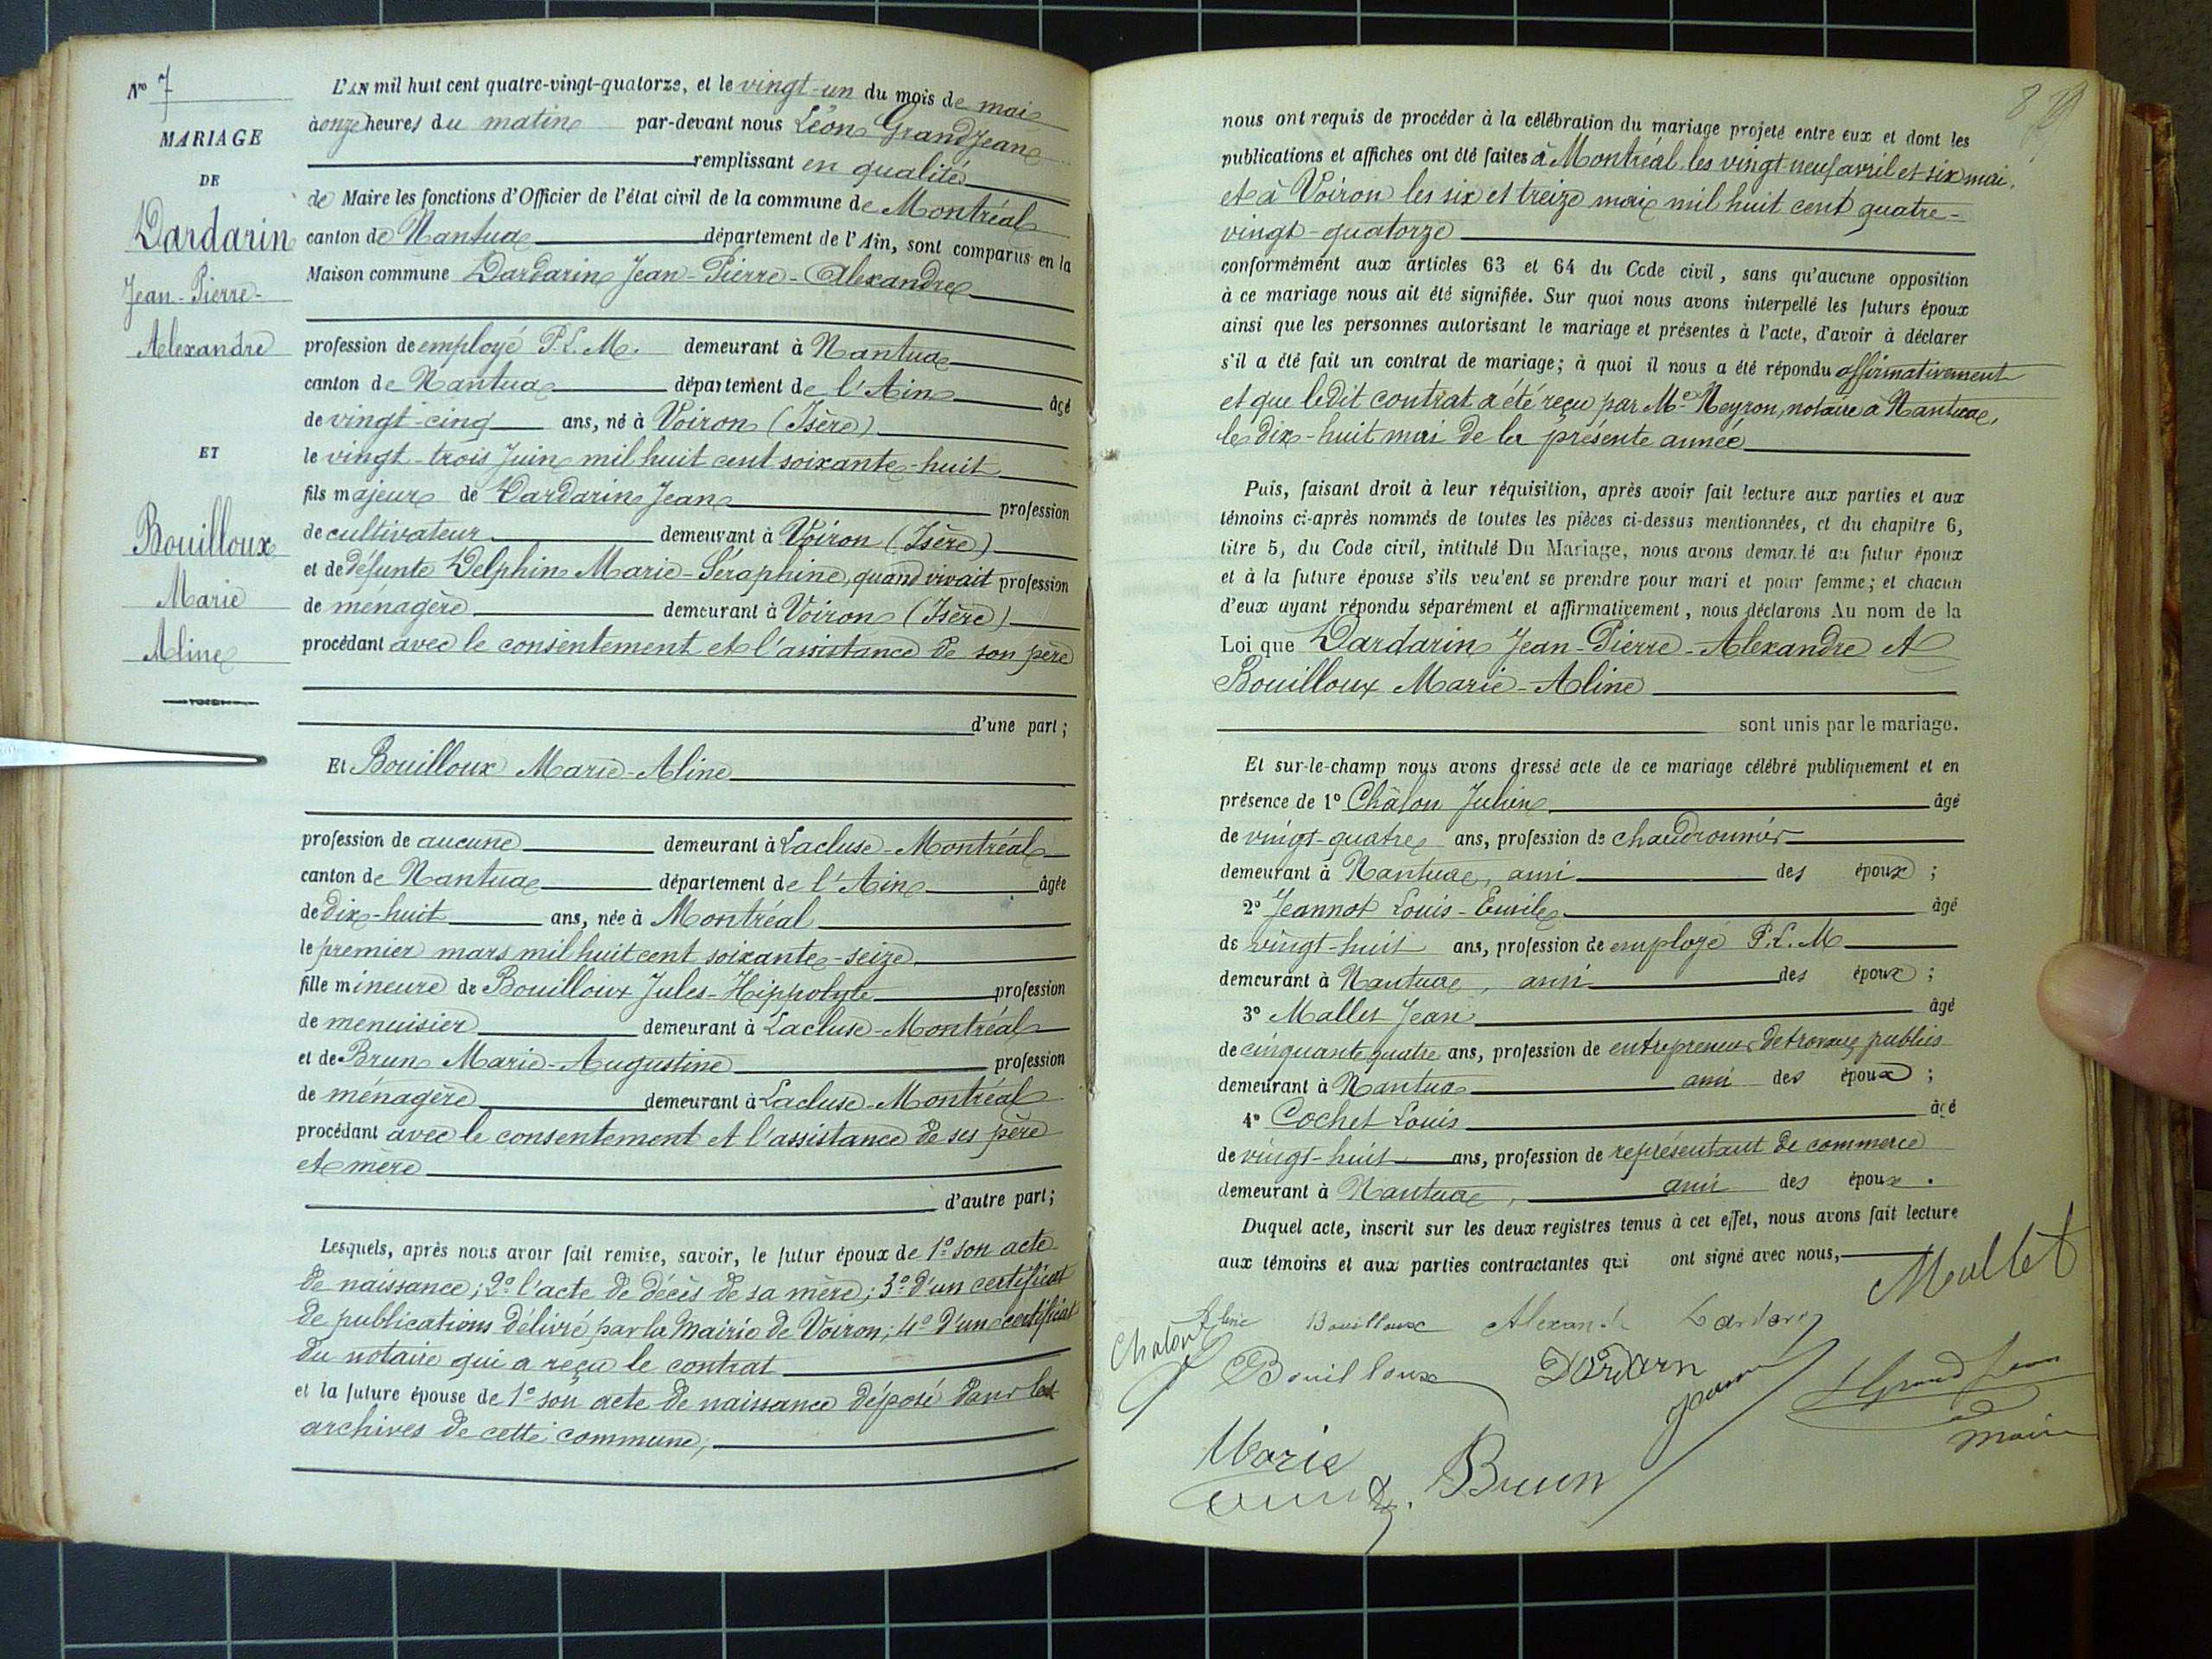 Nº 7
MARIAGE
DE
Dardarin
Jean-Pierre-
Alexandre
ET
Bouilloux
Marie
Aline
L'AN mil huit cent quatre-vingt-quatorze, et le vingt-un du mois de mai
à onze heures du matin par-devant nous Léon Grandjean
remplissant en qualité
de Maire les fonctions d'Officier de l'état civil de la commune de Montréal
canton de Nantua département de l'Ain, sont comparus en la
Maison commune Dardarin Jean-Pierre-Alexandre
profession de employé P.L.M. demeurant à Nantua
canton de Nantua département de l'Ain âgé
de vingt-cinq ans, né à Voiron (Isère)
le vingt-trois Juin mil huit cent soixante-huit
fils majeur de Dardarin Jean profession
de cultivateur demeurant à Voiron (Isère)
et de défunte Delphin Marie-Séraphine, quand vivait profession
de ménagère demeurant à Voiron (Isère)
procédant avec le consentement et l'assistance de son père
d'une part;
Et Bouilloux Marie-Aline
profession de aucune demeurant à Lacluse-Montréal
canton de Nantua département de l'Ain âgée
de dix-huit ans, née à Montréal
le premier mars mil huit cent soixante-seize
fille mineure de Bouilloux Jules-Hippolyte profession
de menuisier demeurant à Lacluse-Montréal
et de Brun Marie-Augustine profession
de ménagère demeurant à Lacluse-Montréal
procédant avec le consentement et l'assistance de ses père
et mère
d'autre part;
Lesquels, après nous avoir fait remise, savoir, le futur époux de 1º son acte
de naissance; 2º l'acte de décès de sa mère; 3º d'un certificat
de publications délivré par la Mairie de Voiron; 4º d'un certificat
du notaire qui a reçu le contrat
et la future épouse de 1º son acte de naissance déposé dans les
archives de cette commune;
8
nous ont requis de procéder à la célébration du mariage projeté entre eux et dont les
publications et affiches ont été faites à Montréal les vingt neuf avril et six mai,
et à Voiron les six et treize mai mil huit cent quatre-
vingt-quatorze
conformément aux articles 63 et 64 du Code civil, sans qu'aucune opposition
à ce mariage nous ait été signifiée. Sur quoi nous avons interpellé les futurs époux
ainsi que les personnes autorisant le mariage et présentes à l'acte, d'avoir à déclarer
s'il a été fait un contrat de mariage; à quoi il nous a été répondu affirmativement
et que ledit contrat a été reçu par Me Neyron, notaire à Nantua,
le dix-huit mai de la présente année
Puis, faisant droit à leur réquisition, après avoir fait lecture aux parties et aux
témoins ci-après nommés de toutes les pièces ci-dessus mentionnées, et du chapitre 6,
titre 5, du Code civil, intitulé Du Mariage, nous avons demandé au futur époux
et à la future épouse s'ils veulent se prendre pour mari et pour femme; et chacun
d'eux ayant répondu séparément et affirmativement, nous déclarons Au nom de la
Loi que Dardarin Jean-Pierre-Alexandre et
Bouilloux Marie-Aline
sont unis par le mariage.
Et sur-le-champ nous avons dressé acte de ce mariage célébré publiquement et en
présence de 1º Châlon Julien âgé
de vingt-quatre ans, profession de chaudronnier
demeurant à Nantua, ami des époux;
2º Jeannot Louis-Emile âgé
de vingt-huit ans, profession de employé P.L.M
demeurant à Nantua, ami des époux;
3º Mallet Jean âgé
de cinquante quatre ans, profession de entrepreneur de travaux publics
demeurant à Nantua ami des époux;
4º Cochet Louis âgé
de vingt-huit ans, profession de représentant de commerce
demeurant à Nantua, ami des époux.
Duquel acte, inscrit sur les deux registres tenus à cet effet, nous avons fait lecture
aux témoins et aux parties contractantes qui ont signé avec nous,
Mallet
Aline Bouilloux Alexandre Dardarin
Chalon
Bouilloux Dardarn
LGrandjean
Maire
Marie
Brun